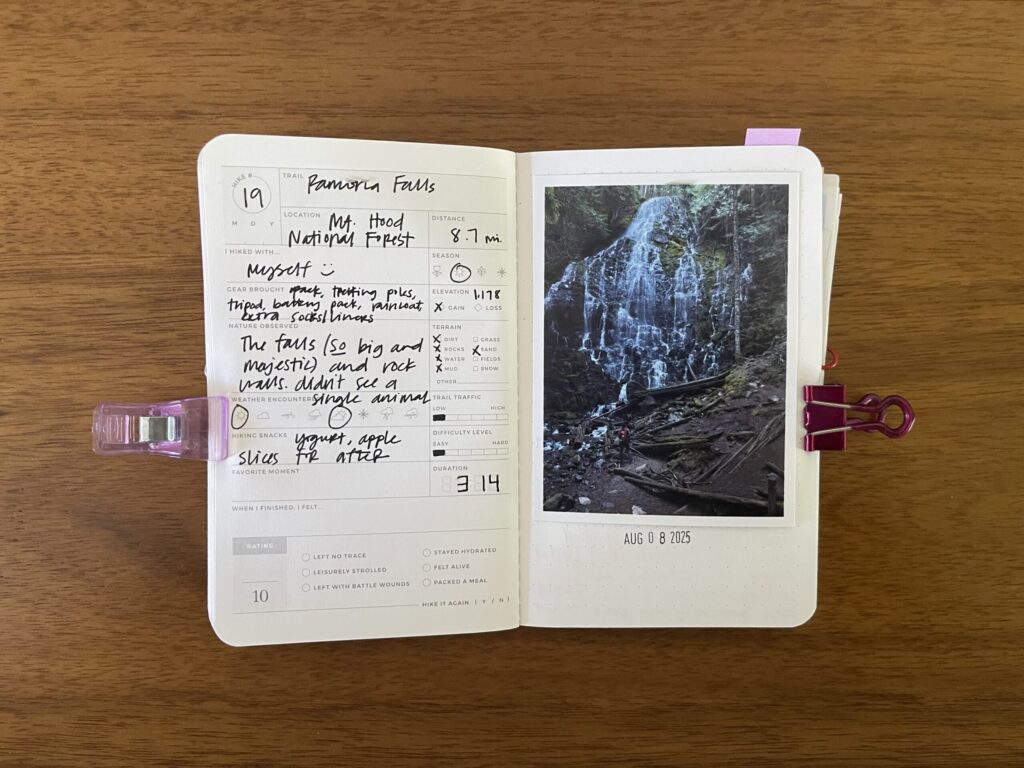 HIKE #
19
M D Y
TRAIL Ramona Falls
LOCATION Mt. Hood
National Forest
DISTANCE
8.7 mi.
I HIKED WITH...
Myself :)
SEASON
GEAR BROUGHT pack, trekking poles,
tripod, battery pack, raincoat,
extra socks/liners
ELEVATION 1,178
X GAIN LOSS
NATURE OBSERVED
The falls (so big and
majestic) and rock
walls. didn't see a
single animal
TERRAIN
X DIRT GRASS
X ROCKS X SAND
X WATER FIELDS
X MUD SNOW
OTHER
WEATHER ENCOUNTERED
TRAIL TRAFFIC
LOW HIGH
HIKING SNACKS yogurt, apple
slices FR AFTER
DIFFICULTY LEVEL
EASY HARD
FAVORITE MOMENT
DURATION
3 14
WHEN I FINISHED, I FELT...
RATING
10
LEFT NO TRACE
LEISURELY STROLLED
LEFT WITH BATTLE WOUNDS
STAYED HYDRATED
FELT ALIVE
PACKED A MEAL
HIKE IT AGAIN ( Y / N )
AUG 08 2025